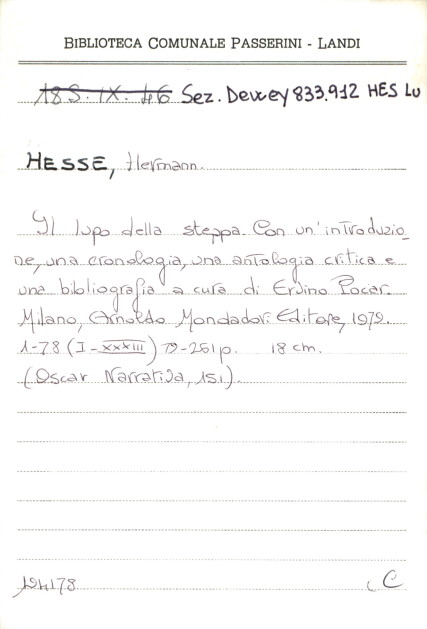 BIBLIOTECA COMUNALE PASSERINI - LANDI
18 S. IX. 46 Sez. Dewey 833.912 HES Lu
HESSE, Hermann.
Il lupo della steppa. Con un'introduzio_
ne, una cronologia, una antologia critica e
una bibliografia a cura di Ervino Pocar.
Milano, Arnoldo Mondadori Editore, 1979.
1-78 (I-XXXIII) 79-261 p. 18 cm.
(Oscar Narrativa, 151).
194178 C